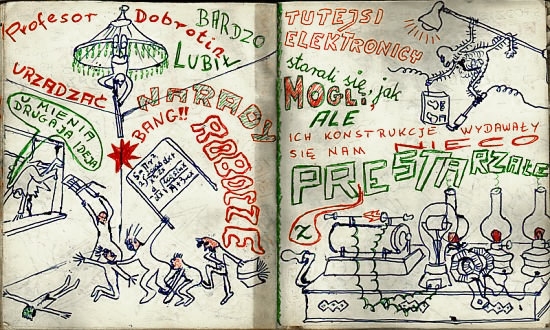 Profesor Dobrotin
BARDZO
LUBIŁ
URZĄDZAĆ
NARADY
ROBOCZE
BANG!!
U MIENIA
DRUGAJA IDEJA
TUTEJSI
ELEKTRONICY
starali się, jak
MOGLI,
ALE
ICH KONSTRUKCJE WYDAWAŁY
SIĘ NAM NIECO
PRESTARZAŁE